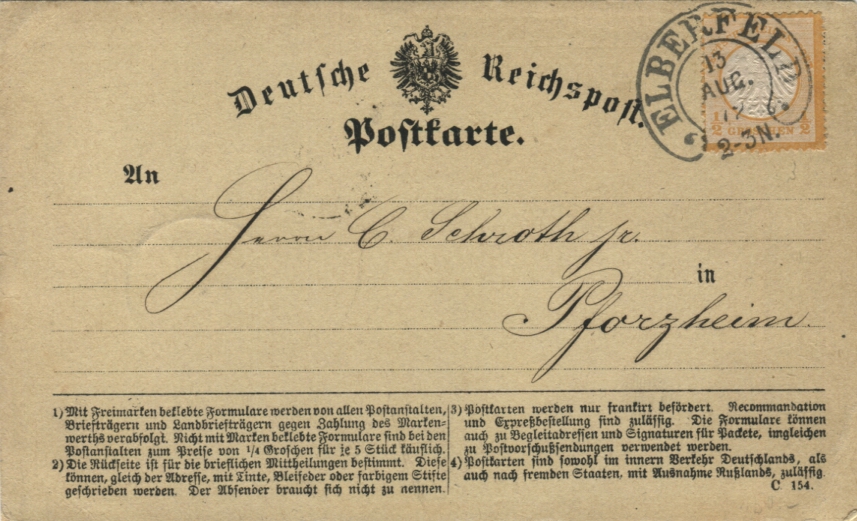 Deutſche Reichspoſt.
Poſtkarte.
ELBERFELD
13
AUG.
2-3N.
1/2 GROSCHEN 1/2
An
Herrn C. Schroth jr.
in
Pforzheim.
1) Mit Freimarken beklebte Formulare werden von allen Poſtanſtalten,
Briefträgern und Landbriefträgern gegen Zahlung des Marken-
werths verabfolgt. Nicht mit Marken beklebte Formulare ſind bei den
Poſtanſtalten zum Preiſe von 1/4 Groſchen für je 5 Stück käuflich.
2) Die Rückſeite iſt für die brieflichen Mittheilungen beſtimmt. Dieſe
können, gleich der Adreſſe, mit Tinte, Bleifeder oder farbigem Stifte
geſchrieben werden. Der Abſender braucht ſich nicht zu nennen.
3) Poſtkarten werden nur frankirt befördert. Recommandation
und Expreßbeſtellung ſind zuläſſig. Die Formulare können
auch zu Begleitadreſſen und Signaturen für Packete, imgleichen
zu Poſtvorſchußſendungen verwendet werden.
4) Poſtkarten ſind ſowohl im innern Verkehr Deutſchlands, als
auch nach fremden Staaten, mit Ausnahme Rußlands, zuläſſig.
C. 154.